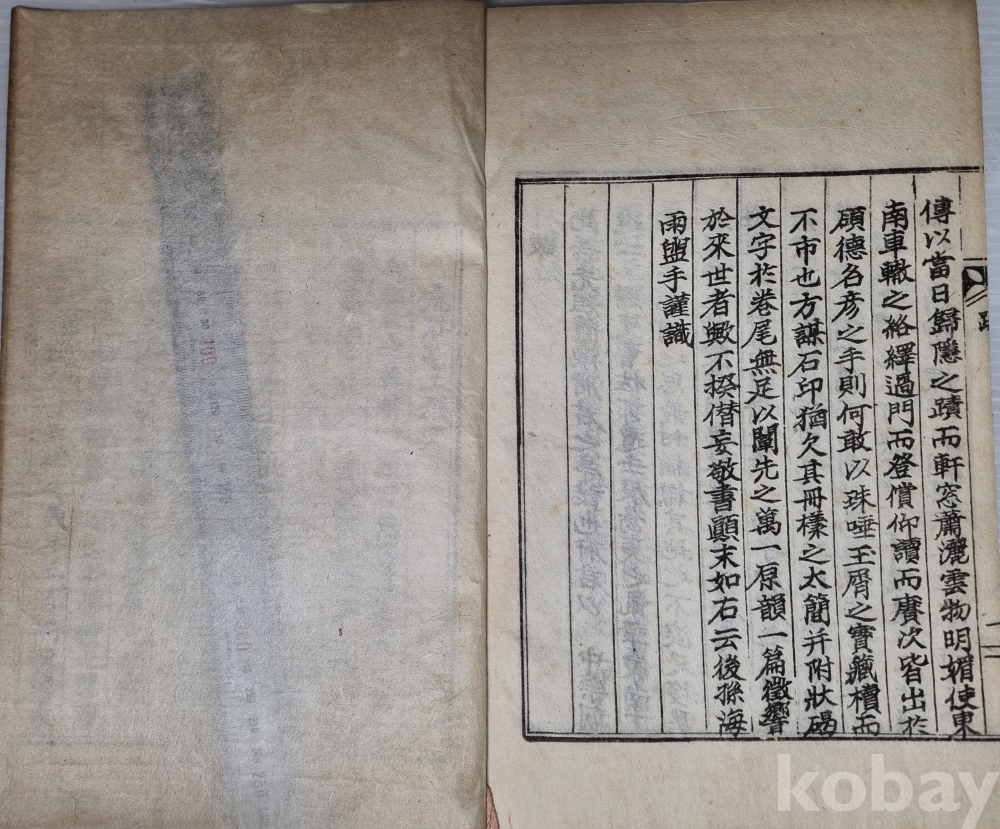 傳以當日歸隱之蹟而軒窓蕭灑雲物明媚使東
南車轍之絡繹過門而登償仰讀而賡次皆出於
碩德名彦之手則何敢以珠唾玉屑之寶藏櫝而
不市也方謀石印猶欠其冊樣之太簡并附狀碣
文字於卷尾無足以闡先之萬一原韻一篇徵響
於來世者歟不揆僣妄敬書顚末如右云後孫海
雨盥手謹識
跋
二
100
kobay